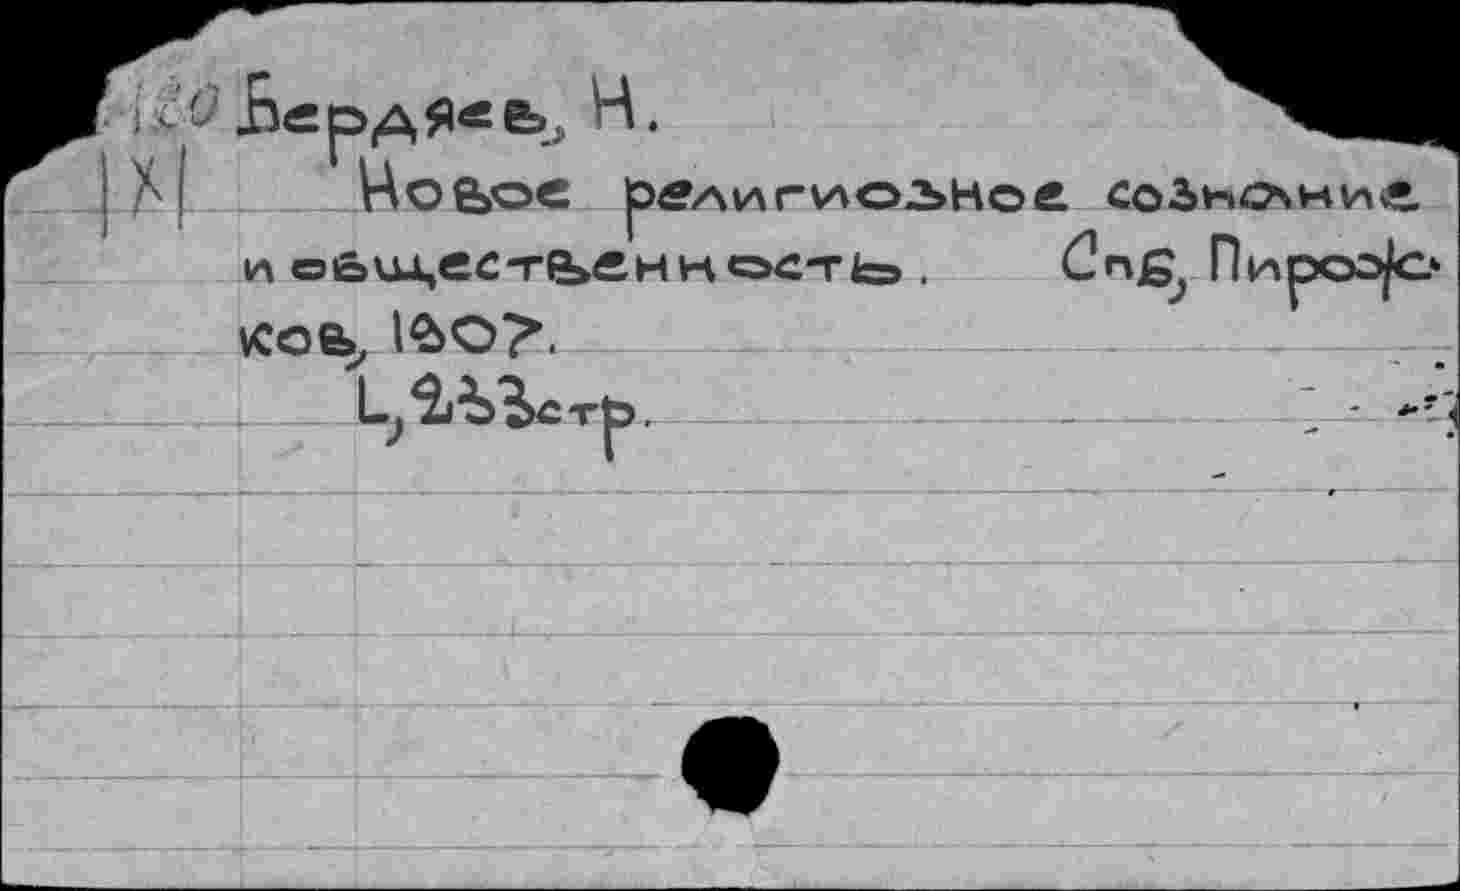 Бердяев, Н.
|X|
Новое религиозное сознание
и общественность. Спб, Пирож-
ков, 1907.
L, 233 стр.